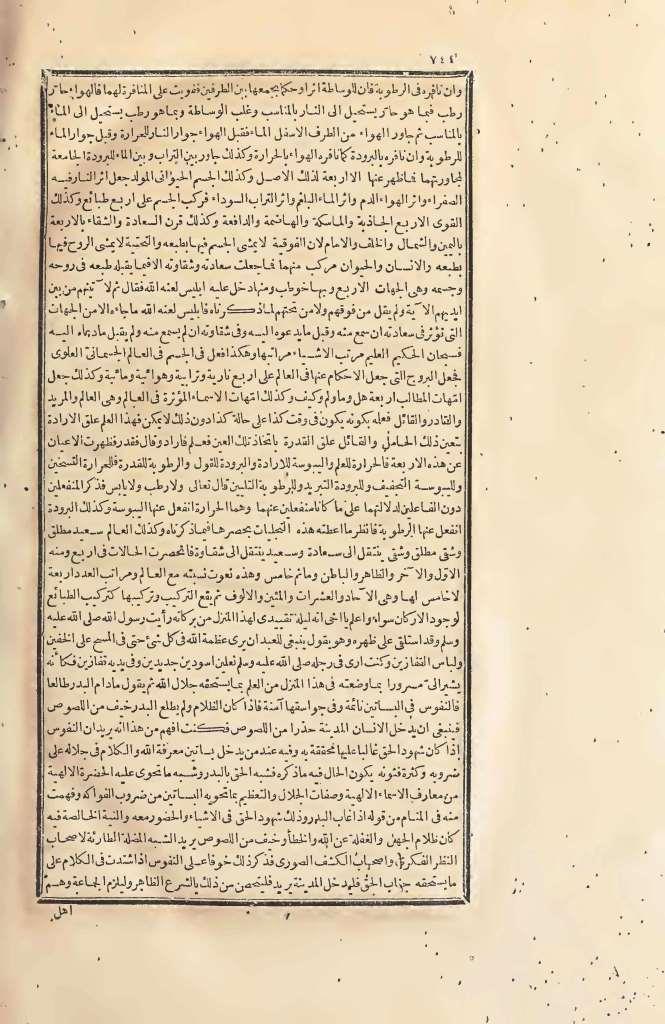 ٧٤٤
وان نافره فى الرطوبة فان للوساطة اثرا وحكما يجمعها بين الطرفين فقويت على المنافرة لهما فالهواء حار
رطب فبما هو حار يستحيل الى النار بالمناسب وغلب الوساطة وبما هو رطب يستحيل الى الماء
بالمناسب ثم جاور الهواء من الطرف الاسفل الماء فقبل الهواء جوار النار للحرارة وقبل جوار الماء
للرطوبة وان نافره بالبرودة كما نافره الهواء بالحرارة وكذلك جاور بين التراب وبين الماء للبرودة الجامعة
لمجاورتهما فاظهر عنها الاربعة لذلك الاصل وكذلك الجسم الحيوانى المولد جعل اثر النار فيه
الصفراء واثر الهواء الدم واثر الماء البلغم واثر التراب السوداء فركب الجسم على اربع طبائع وكذلك
القوى الاربع الجاذبة والماسكة والهاضمة والدافعة وكذلك قرن السعادة والشقاء بالاربعة
باليمين والشمال والخلف والامام لان الفوقية لا يمشى الجسم فيها بطبعه والتحتية لا يمشى الروح فيها
بطبعه والانسان والحيوان مركب منهما فما جعلت سعادته وشقاوته الا فيما يقبله طبعه فى روحه
وجسمه وهى الجهات الاربع وبها خوطب ومنها دخل عليه ابليس لعنه الله فقال ثم لآتينهم من بين
ايديهم الآية ولم يقل من فوقهم ولا من تحتهم لما ذكرناه فابليس لعنه الله ما جاءه الا من الجهات
التى تؤثر فى سعادته ان سمع منه وقبل ما يدعوه اليه وفى شقاوته ان لم يسمع منه ولم يقبل ما دعاه اليه
فسبحان الحكيم العليم مرتب الاشياء مراتبها وهكذا فعل فى الجسم فى العالم الجسمانى العلوى
فجعل البروج التى جعل الاحكام عنها فى العالم على اربع نارية وترابية وهوائية ومائية وكذلك جعل
امهات المطالب اربعة هل وما ولم وكيف وكذلك امهات الاسماء المؤثرة فى العالم وهى العالم والمريد
والقادر والقائل فعلمه بكونه يكون فى وقت كذا على حالة كذا دون ذلك لا يمكن فهذا العلم علق الارادة
بتعين ذلك الحامل والقائل علق القدرة باتخاذ تلك العين فعلم فاراد وقال فقدر فظهرت الاعيان
عن هذه الاربعة فالحرارة للعلم واليبوسة للارادة والبرودة للقول والرطوبة للقدرة فللحرارة التسخين
ولليبوسة التجفيف وللبرودة التبريد وللرطوبة التليين قال تعالى ولا رطب ولا يابس فذكر المنفعلين
دون الفاعلين لدلالتهما على ما كانا منفعلين عنهما وهما الحرارة انفعل عنها اليبوسة وكذلك البرودة
انفعل عنها الرطوبة فانظر ما اعطته هذه التجليات بحصرها فيما ذكرناه وكذلك العالم سعيد مطلق
وشقى مطلق وشقى ينتقل الى سعادة وسعيد ينتقل الى شقاوة فانحصرت الحالات فى اربع ومنه
الاول والآخر والظاهر والباطن وما ثم خامس وهذه نعوت نسبته مع العالم ومراتب العدد اربعة
لا خامس لها وهى الآحاد والعشرات والمئين والالوف ثم يقع التركيب وتركيبها كتركيب الطبائع
لوجود الاركان سواء واعلم يا اخى انه ليلة تقييدى لهذا المنزل من بركاته رأيت رسول الله صلى الله عليه
وسلم وقد استلقى على ظهره وهو يقول ينبغى للعبد ان يرى عظمة الله فى كل شئ حتى فى المسح على الخفين
ولباس القفازين وكنت ارى فى رجله صلى الله عليه وسلم نعلين اسودين جديدين وفى يديه قفازين فكأنه
يشير الىّ مسرورا بما وضعته فى هذا المنزل من العلم بما يستحقه جلال الله ثم يقول ما دام البدر طالعا
فالنفوس فى البساتين نائمة وفى جواسقها آمنة فاذا كان الظلام ولم يطلع البدر خيف من اللصوص
فينبغى ان يدخل الانسان المدينة حذرا من اللصوص فكنت افهم من هذا انه يريد ان النفوس
اذا كان شهود الحق غالبا عليها محققة به وفيه عند من يدخل بساتين معرفة الله والكلام فى جلاله على
ضروبه وكثرة فنونه يكون الحال فيه ما ذكره فشبه الحق بالبدر وشبه ما تحوى عليه الحضرة الالهية
من معارف الاسماء الالهية وصفات الجلال والتعظيم بما تحويه البساتين من ضروب الفواكه وفهمت
منه فى المنام من قوله اذا غاب البدر وذلك شهود الحق فى الاشياء والحضور معه والنية الخالصة فيه
كان ظلام الجهل والغفلة عن الله والخطأ وخيف من اللصوص يريد الشبه المضلة الطارئة لاصحاب
النظر الفكرى واصحاب الكشف الصورى فذكر ذلك خوفا على النفوس اذا اشتدت فى الكلام على
ما يستحقه جناب الحق فليدخل المدينة يريد فليتحصن من ذلك بالشرع الظاهر وليلزم الجماعة وهم
اهل